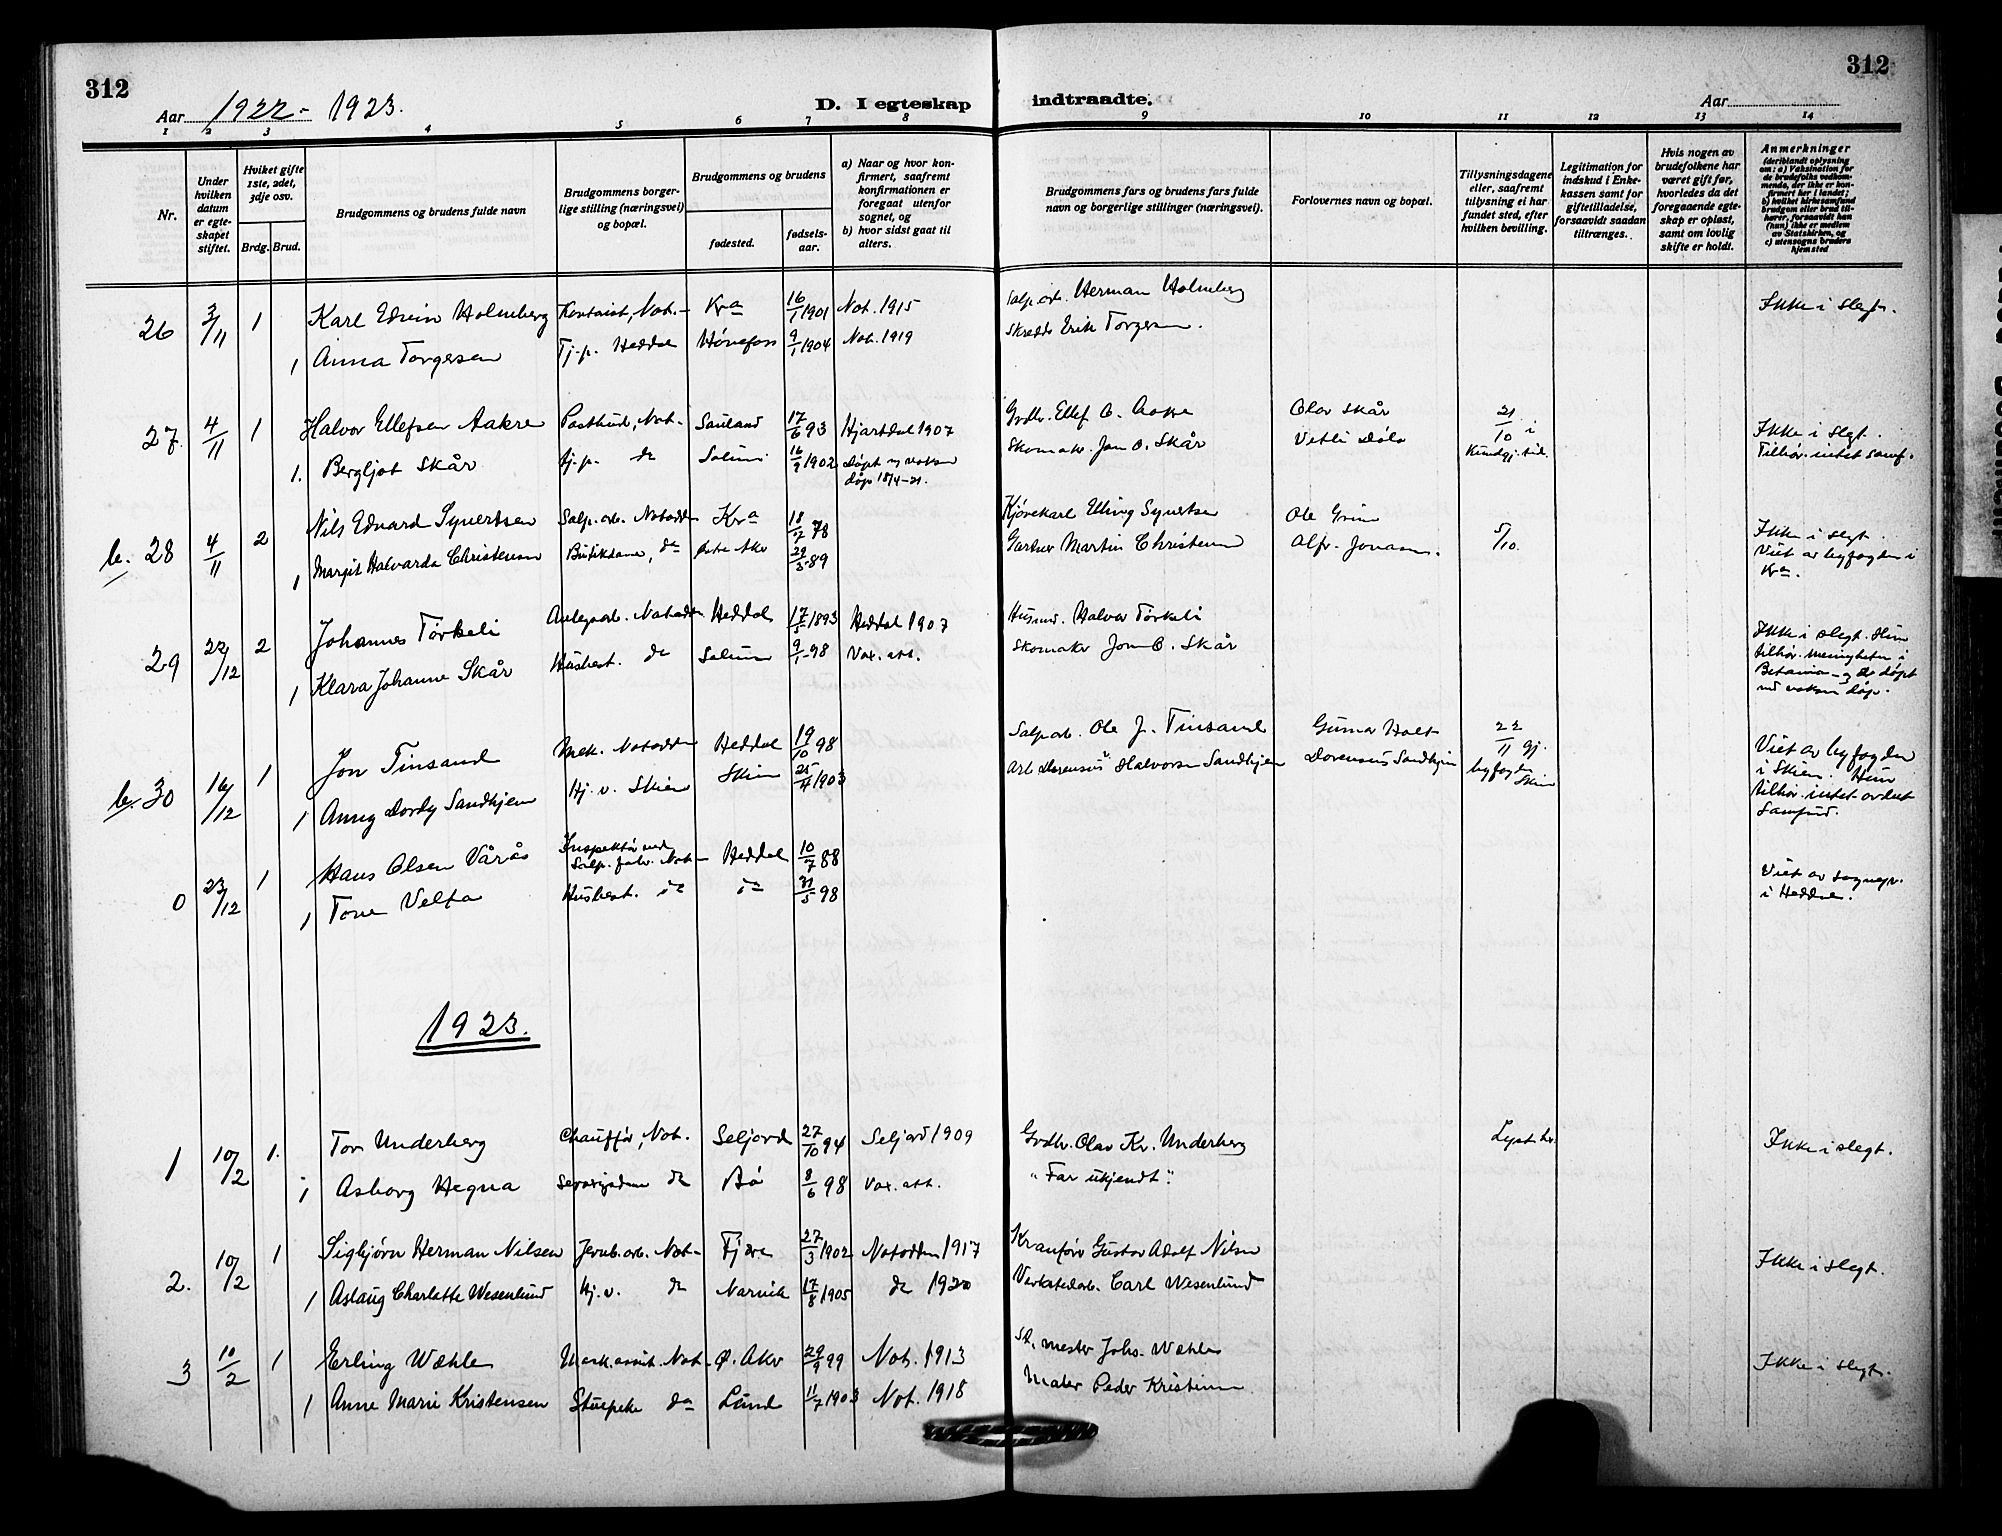 312
312
Aar 1922 - 1923.
D. I egteskap indtraadte.
Aar
1 2 3 4 5 6 7 8 9 10 11 12 13 14
Nr.
Under hvilken datum er egteskapet stiftet.
Hviket gifte 1ste, 2det, 3dje osv.
Brdg. Brud.
Brudgommens og brudens fulde navn
Brudgommens borgerlige stilling (næringsvei) og bopæl.
Brudgommens og brudens
fødested.
fødselsaar.
a) Naar og hvor konfirmert, saafremt konfirmationen er foregaat utenfor sognet, og
b) hvor sidst gaat til alters.
Brudgommens fars og brudens fars fulde navn og borgerlige stillinger (næringsvei).
Forlovernes navn og bopæl.
Tillysningsdagene eller, saafremt tillysning ei har fundet sted, efter hvilken bevilling.
Legitimation for indskud i Enkekassen samt for giftetilladelse, forsaavidt saadan tiltrænges.
Hvis nogen av brudefolkene har været gift før, hvorledes da det foregaaende egteskap er opløst, samt om lovlig skifte er holdt.
Anmerkninger
(deriblandt oplysning om: a) Vaksination for de brudefolks vedkommende, der ikke er konfirmert her i landet; b) hvilket kirkesamfund brudgom eller brud tilhører, forsaavidt han (hun) ikke er medlem av Statskirken, og c) utensogns bruders hjemsted
26 3/11 1 Karl Edvin Holmberg Kontorist, Not. Kra 16/1 1901 Not. 1915 Salp. arb. Herman Holmberg Ikke i slegt.
1 Anna Torgersen Tj.p. Heddal Hønefoss 9/1 1904 Not. 1919 Skredder Erik Torgersen.
27. 4/11 1 Halvor Ellefsen Aakre Postbud, Not. Sauland 17/6 93 Hjartdal 1907 Grdbr. Ellef O. Aakre Olav Skår 21/10 i Kundgj. tid. Ikke i slegt. Tilhør. intet samf.
1. Bergljot Skår tj.p. do Solum 16/9 1902 Døpt m voksen døp 18/4-21. Skomaker Jon O. Skår
b. 28 4/11 2 Nils Edvard Syvertsen Salp. arb. Notodden Kra 18/7 78 Kjørekarl Elling Syvertsen Ole Grini 5/10. Ikke i slegt. Viet av byfogden i Kra.
1 Margit Halvarda Christensen Butikdame, do Østre Aker 29/3 89 Gartner Martin Christensen Alfr. Jonassen.
29 22/12 2 Johannes Tørkeli Anlegsarb. Notodden Heddal 17/5 1893 Heddal 1907 Husmd. Halvor Tørkeli Ikke i slegt. Hun tilhør. menigheten i Betania - og er døpt med voksen døp.
1 Klara Johanne Skår Husbest. do Solum 9/1 98 Vox. att. Skomaker Jon O. Skår
b. 30 16/12 1 Jon Tinsand Mek. Notodden Heddal 19/10 98 Salp. arb. Ole J. Tinsand Gunnar Holt 22/11 gj. byfogden Skien Viet av byfogden i Skien. Hun tilhør. intet ordnet Samfund.
1 Anny Dordy Sandkjern Hj. v. Skien Skien 25/4 1903 Arb Dorensius Halvorsen Sandkjern Dorensius Sandkjern
0 23/12 1 Hans Olsen Vårås Inspektør ved Salp. fabr. Not. Heddal 10/7 88 Viet av sognepr. i Heddal.
1 Tone Velta Husbest. do do 31/5 98
1923.
1 10/2 1. Tor Underberg Chauffør, Not. Seljord 27/10 94 Seljord 1909 Grdbr. Olav Kr. Underberg Lyst her Ikke i slegt.
1 Asborg Hegna Serveringsdame do Bø 8/6 98 Vox. att. "Far ukjendt".
2. 10/2 1 Sigbjørn Herman Nilsen Jernb. arb. Not. Fjære 27/3 1902 Notodden 1917 Kranfører Gustav Adolf Nilsen Ikke i slegt.
1 Aslaug Charlotte Wesenlund Hj. v. do Narvik 17/8 1905 do 1920 Verkstedarb. Carl Wesenlund
3 10/2 1 Erling Wæhler Mask. assist. Not. Ø. Aker 29/9 99 Not. 1913 St. mester Johs. Wæhler Ikke i slegt.
1 Anne Marie Kristensen Stuepike do Lunde 11/7 1903 Not. 1918 Maler Peder Kristensen